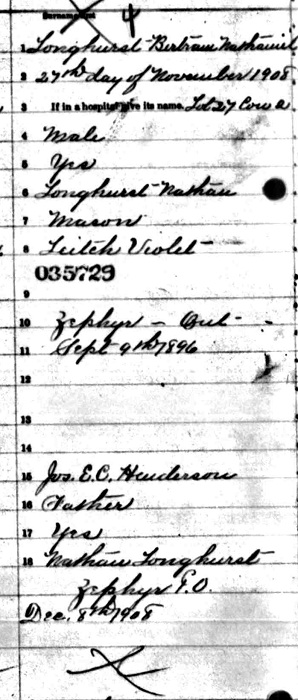 Surname
4
1 Longhurst Bertram Nathaniel
2 27th day of November 1908
3 If in a hospital give its name. Lot 27 Con a
4 Male
5 Yes
6 Longhurst Nathan
7 Mason
8 Leitch Violet
035729
9
10 Zephyr - Ont -
11 Sept 9th 1896
12
13
14
15 Jos. E. C. Henderson
16 Father
17 Yes
18 Nathan Longhurst
Zephyr P.O.
Dec. 8th 1908